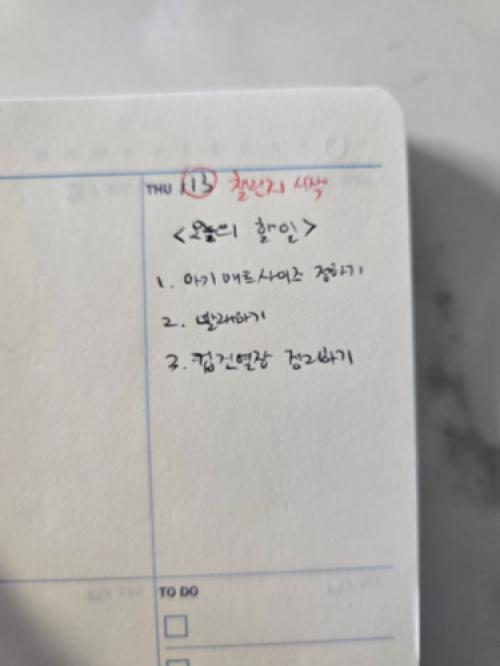 THU 13 챌린지 시작
<오늘의 할일>
1. 아기매트사이즈 정하기
2. 빨래하기
3. 컵건열장 정리하기
TO DO